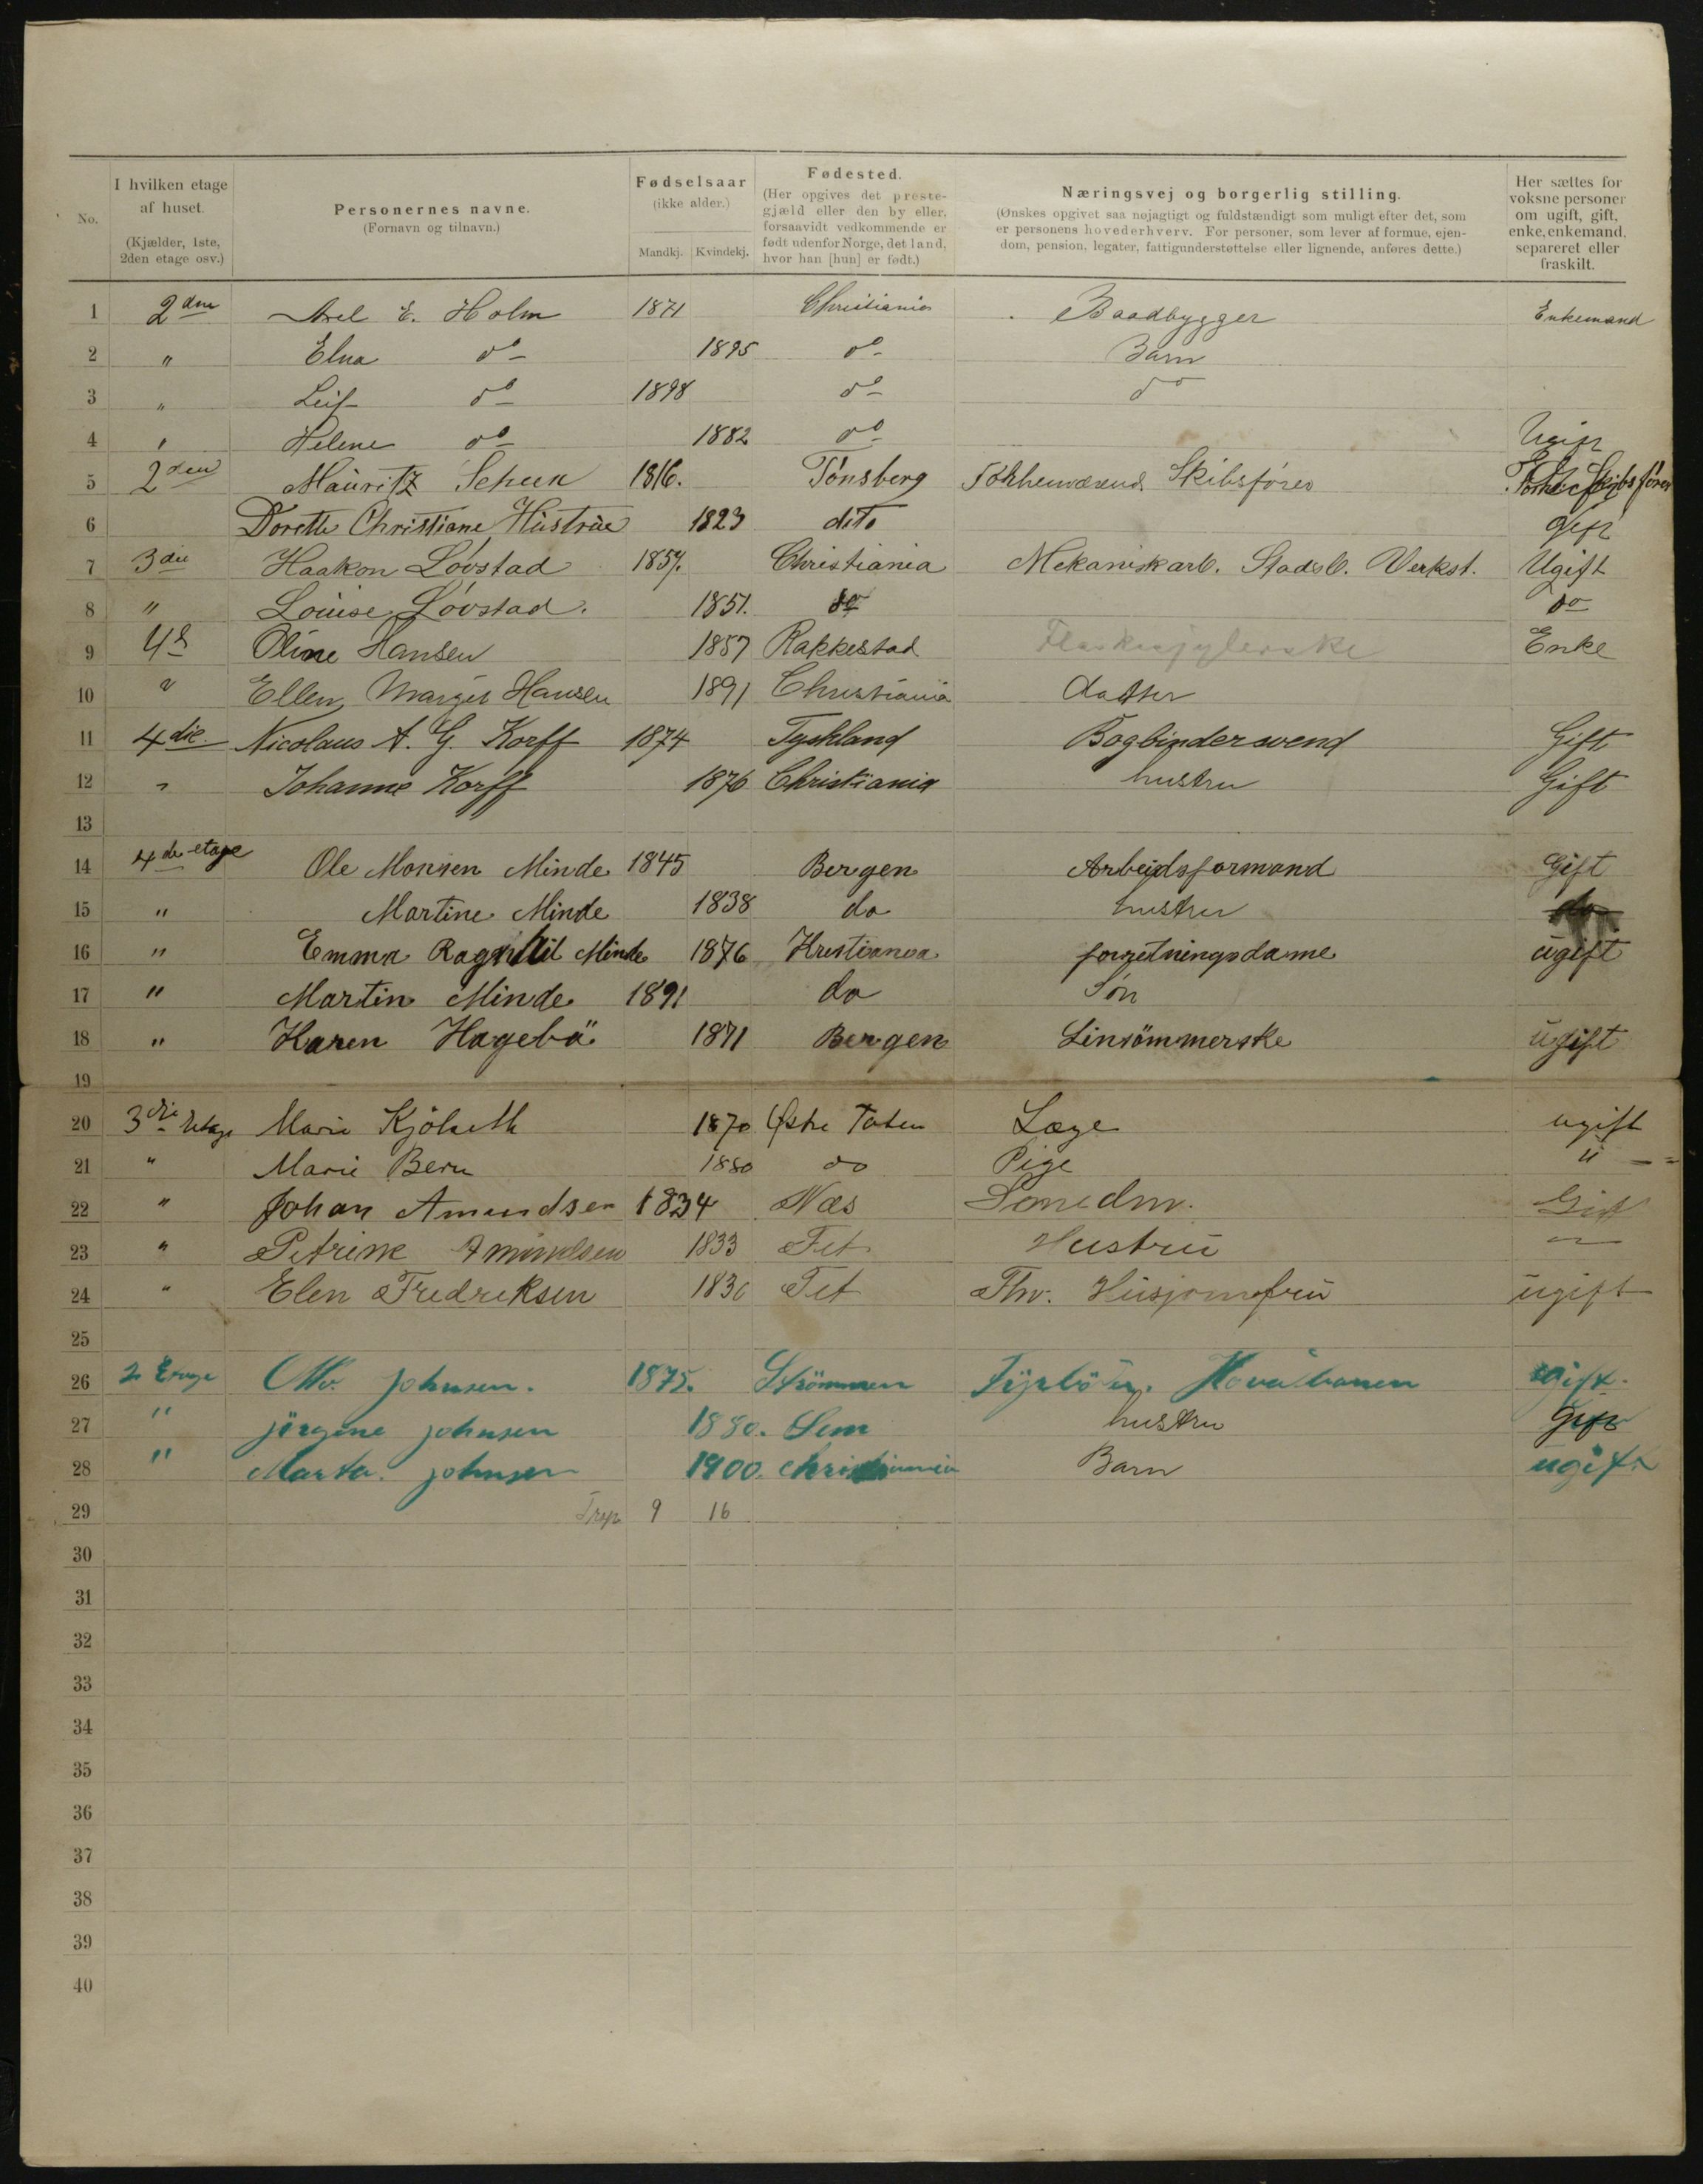 No.
I hvilken etage af huset.
(Kjælder, 1ste, 2den etage osv.)
Personernes navne.
(Fornavn og tilnavn.)
Fødselsaar
(ikke alder.)
Mandkj. Kvindekj.
Fødested.
(Her opgives det preste-
gjæld eller den by eller,
forsaavidt vedkommende er
født udenfor Norge, det land,
hvor han [hun] er født.)
Næringsvej og borgerlig stilling.
(Ønskes opgivet saa nøjagtigt og fuldstændigt som muligt efter det, som
er personens hovederhverv. For personer, som lever af formue, ejen-
dom, pension, legater, fattigunderstøttelse eller lignende, anføres dette.)
Her sættes for
voksne personer
om ugift, gift,
enke, enkemand,
separeret eller
fraskilt.
1 2den Axel E. Holm 1871 Christiania Baadbygger Enkemand
2 " Elna do 1895 do Barn
3 " Leif do 1898 do do
4 " Helene do 1882 do Ugift
5 2den Mauritz Scheen 1816. Tønsberg Skibsfører
6 Dorette Christiane Hustrue 1823 dito Gift
7 3die Haakon Løvstad 1857. Christiania Mekanisk arb. Stadsb. Verkst. Ugift
8 " Louise Løvstad. 1851. do do
9 Oline Hansen 1857 Rakkestad Enke
10 " Ellen Margit Hansen 1891 Christiania datter
11 4die Nicolaus A. G. Korff 1874 Tyskland Bogbindersvend Gift
12 " Johanne Korff 1876 Christiania hustru Gift
13
14 4de etage Ole Monsen Minde 1845 Bergen Arbeidsformand Gift
15 " Martine Minde 1838 do hustru do
16 " Emma Ragnhil Minde 1876 Kristiania forretningsdame ugift
17 " Martin Minde 1891 do Søn
18 " Karen Hagebö 1871 Bergen Linsömmerske ugift
19
20 3die Etage Marie Kjölseth 1870 Østre Toten Læge ugift
21 " Marie Bern 1880 do Pige u
22 " Johan Amundsen 1834 Næs Gift
23 " Petrine Amundsen 1833 Fet Hustru "
24 " Elen Fredreksen 1836 Fet Husjomfru ugift
25
26 2 Etage Johnsen. 1875. Strömmen Fyrbö Hovedbanen Gift.
27 " jörgine johnsen 1880. Sem hustru Gift
28 " Marta. johnsen 1900. Christiania Barn ugift
29 9 16
30
31
32
33
34
35
36
37
38
39
40